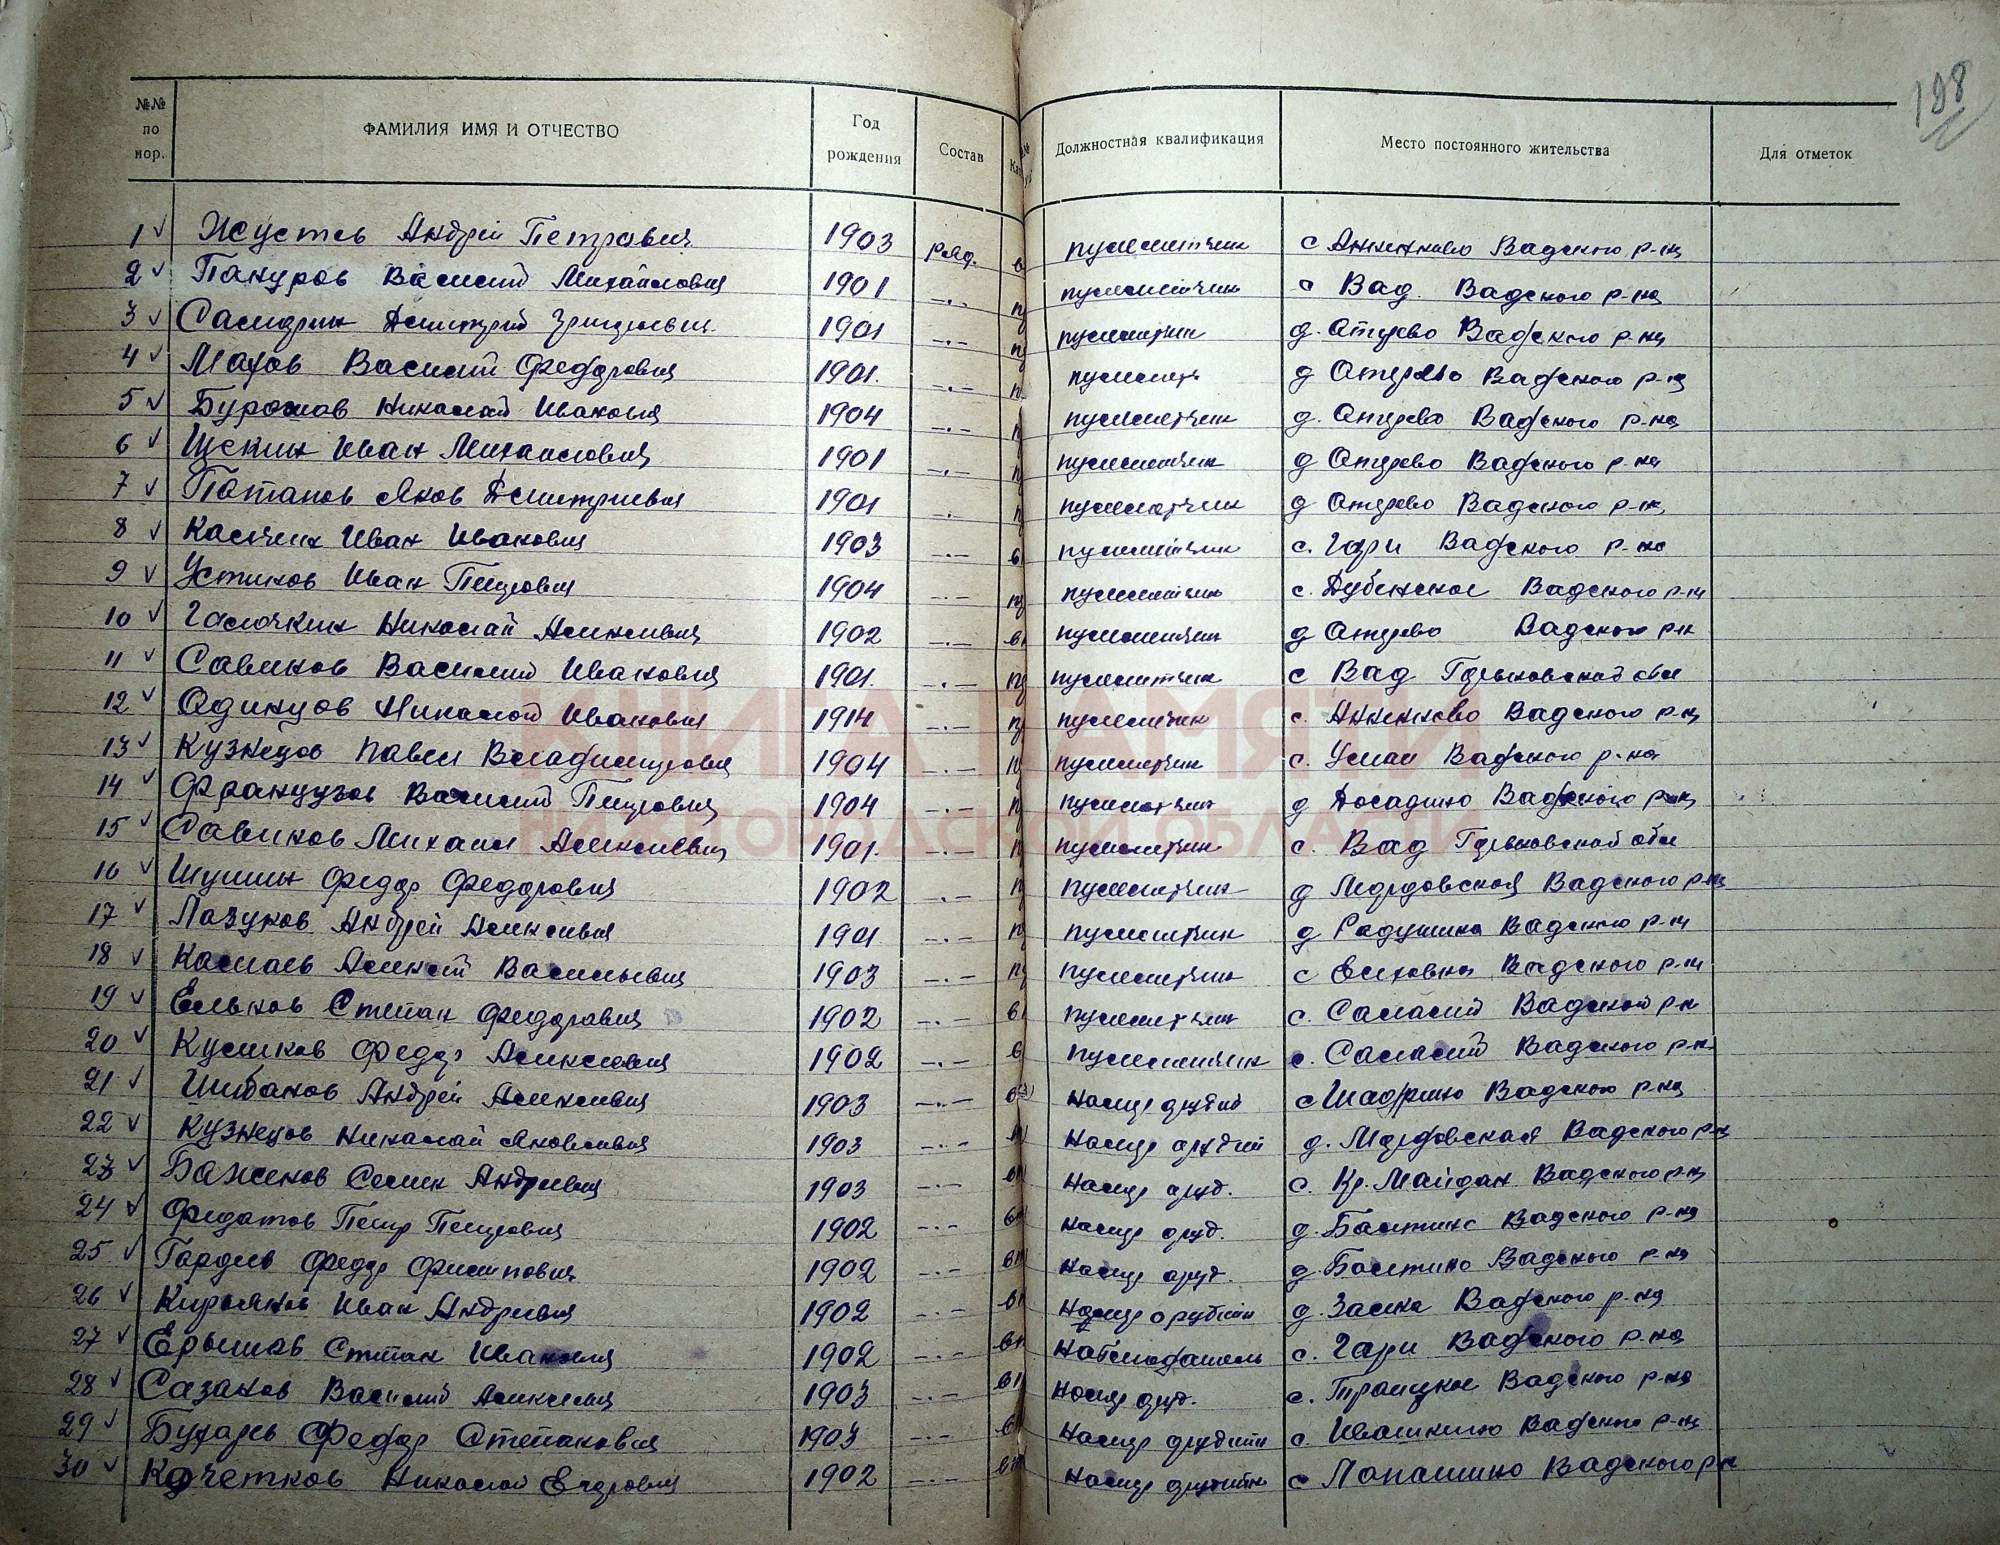 128
№№ по пор. ФАМИЛИЯ ИМЯ И ОТЧЕСТВО Год рождения Состав Должностная квалификация Место постоянного жительства Для отметок
1 Жустев Андрей Петрович 1903 ряд. в пулеметчик с Аненково Вадского р-на
2 Пануров Василий Михайлович 1901 -.- пулеметчик с Вад. Вадского р-на
3 Дмитрий Григорьевич 1901 -.- пулеметчик д. Отерево Вадского р-на
4 Махов Василий Федорович 1901. -.- пулеметч д Отерево Вадского р-на
5 Николай Иванович 1904 -.- пулеметчик д. Отерево Вадского р-на
6 Щекин Иван Михайлович 1901 -.- пулеметчик д Отерево Вадского р-на
7 Потапов Яков Дмитриевич 1901 -.- пулеметчик д Отерево Вадского р-на
8 Иван Иванович 1903 -.- в пулеметчик с. Гари Вадского р-на
9 Устинов Иван Петрович 1904 -.- пулеметчик с. Дубенское Вадского р-н
10 Галочкин Николай Алексеевич 1902 -.- вн пулеметчик д Отерево Вадского р-н
11 Савинов Василий Иванович 1901. -.- пулеметчик с Вад Горьковской обл
12 Одинцов Николай Иванович 1914 -.- пулеметчик с. Аненково Вадского р-на
13 Кузнецов Павел Владимирович 1904 -.- пулеметчик с. Умай Вадского р-на
14 Французов Василий Петрович 1904 -.- пулеметчик д Досадино Вадского р-на
15 Савинов Михаил Алексеевич 1901. -.- пулеметчик с. Вад Горьковской обл
16 Шумин Федор Федорович 1902 -.- пулеметчик д Мордовская Вадского р-на
17 Лазунов Андрей Алексеевич 1901 -.- пулеметчик д Радушина Вадского р-н
18 Алексей Васильевич 1903 -.- пулеметчик с Елховка Вадского р-н
19 Ельков Степан Федорович 1902 -.- в пулеметчик с. Салалей Вадской р-н
20 Куликов Федор Алексеевич 1902 -.- в пулеметчик с. Салалей Вадского р-н
21 Шибанов Андрей Алексеевич 1903 -.- номер орудий с Шафрино Вадского р-на
22 Кузнецов Николай Яковлевич 1903 -.- номер орудий д. Мордовская Вадского р-н
23 Баженов Семен Андреевич 1903 -.- вн номер оруд. с. Кр. Майдан Вадского р-на
24 Федотов Петр Петрович 1902 -.- вн номер оруд. д. Вадского р-на
25 Гордев Федор Филипович 1902 -.- вн номер оруд. д. Вадского р-на
26 Киряков Иван Андреевич 1902 -.- вн номер орудий д. Вадского р-на
27 Ершов Степан Иванович 1902 -.- вн Наблюдатель с. Гари Вадского р-на
28 Сазанов Василий Алексеевич 1903 -.- вн номер оруд. с. Троицкое Вадского р-на
29 Бухарев Федор Степанович 1903 -.- вн номер орудий с. Ивашкино Вадского р-на
30 Кочетков Николай Егорович 1902 -.- вн номер орудийн с Лопатино Вадского р-н
КНИГА ПАМЯТИ
НИЖЕГОРОДСКОЙ ОБЛАСТИ